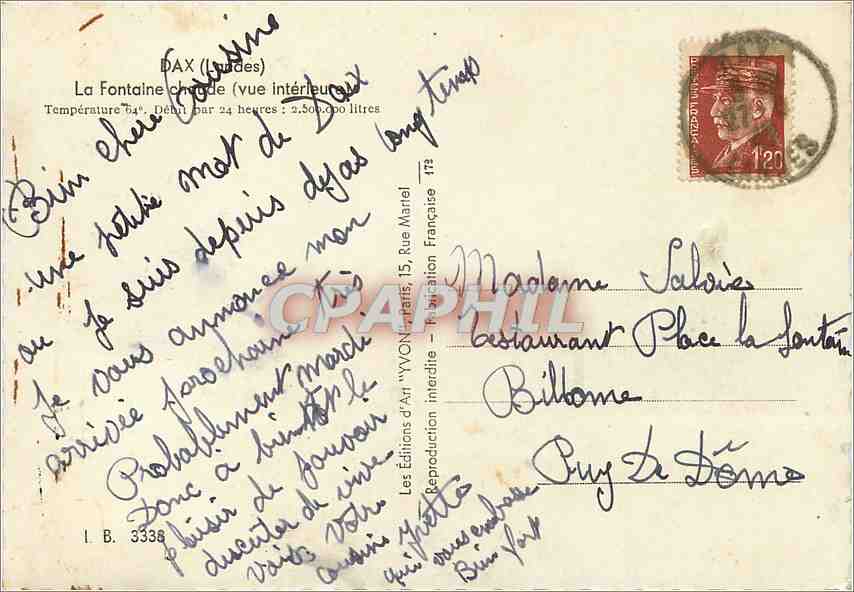 DAX (Landes)
La Fontaine chaude (vue intérieure)
Température 64°. Débit par 24 heures : 2.500.000 litres
Bien chère Cousine
une petite mot de Dax
ou je suis depuis dejas longtemps
Je vous annonce mon
arrivée prochaine très
Probablement mardi
Donc à bientot le
plaisir de pouvoir
discuter de vive
voix. Votre
cousine Yvette
qui vous embrasse
Bien fort
I. B. 3338
Les Editions d'Art "YVON", Paris, 15, Rue Martel
Reproduction interdite – Fabrication Française 17²
1F20
Madame
Restaurant Place la fontaine
Billome
Puy De Dôme
CPAPHIL